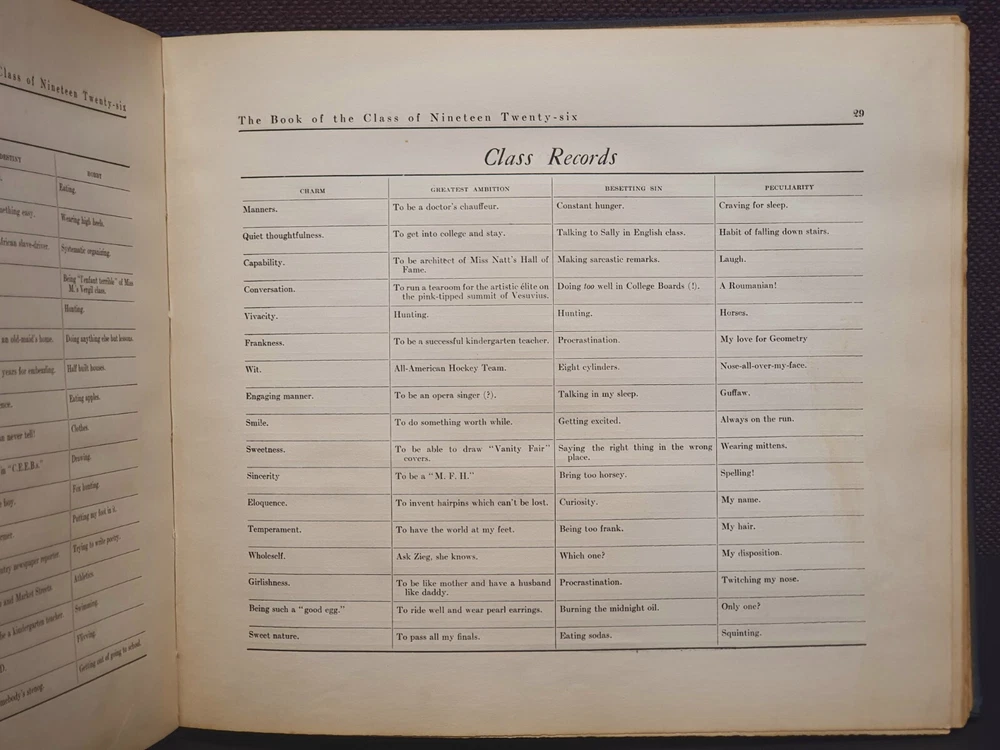 Class of Nineteen Twenty-six
DESTINY HOBBY
Eating.
ething easy. Wearing high heels.
African slave-driver. Systematic organizing.
Being "l'enfant terrible" of Miss
M.'s Vergil class.
Hunting.
an old-maid's home. Doing anything else but lessons.
years for embezzling. Half built houses.
nce. Eating apples.
n never tell! Clothes.
in "C.E.E.B.s." Drawing.
Fox hunting.
Putting my foot in it.
ntry newspaper reporter. Trying to write poetry.
y and Market Streets Athletics.
be a kindergarten teacher. Swimming.
D. Flivving.
mebody's stenog. Getting out of going to school.
The Book of the Class of Nineteen Twenty-six 29
Class Records
CHARM GREATEST AMBITION BESETTING SIN PECULIARITY
Manners. To be a doctor's chauffeur. Constant hunger. Craving for sleep.
Quiet thoughtfulness. To get into college and stay. Talking to Sally in English class. Habit of falling down stairs.
Capability. To be architect of Miss Natt's Hall of Making sarcastic remarks. Laugh.
Fame.
Conversation. To run a tearoom for the artistic élite on Doing too well in College Boards (!). A Roumanian!
the pink-tipped summit of Vesuvius.
Vivacity. Hunting. Hunting. Horses.
Frankness. To be a successful kindergarten teacher. Procrastination. My love for Geometry
Wit. All-American Hockey Team. Eight cylinders. Nose-all-over-my-face.
Engaging manner. To be an opera singer (?). Talking in my sleep. Guffaw.
Smile. To do something worth while. Getting excited. Always on the run.
Sweetness. To be able to draw "Vanity Fair" Saying the right thing in the wrong Wearing mittens.
covers. place.
Sincerity To be a "M. F. H." Being too horsey. Spelling!
Eloquence. To invent hairpins which can't be lost. Curiosity. My name.
Temperament. To have the world at my feet. Being too frank. My hair.
Wholeself. Ask Zieg, she knows. Which one? My disposition.
Girlishness. To be like mother and have a husband Procrastination. Twitching my nose.
like daddy.
Being such a "good egg." To ride well and wear pearl earrings. Burning the midnight oil. Only one?
Sweet nature. To pass all my finals. Eating sodas. Squinting.